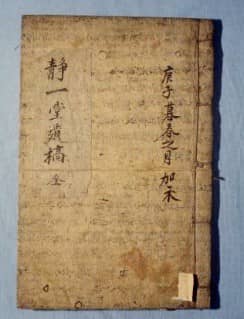 庚子暮春之月 加衣
靜一堂遺稿 全